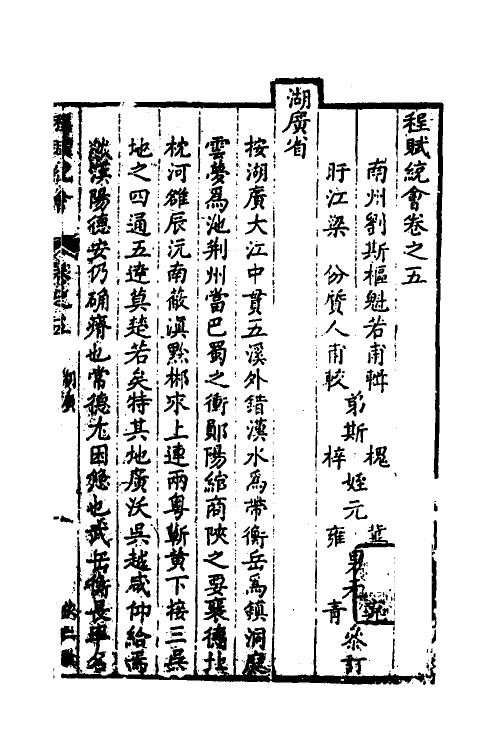 程賦統會卷之五
南州劉斯樞魁若甫輯
旴江梁份質人甫較
弟斯槐
梓
姪元
雍
男木
青
叅訂
湖廣省
按湖廣大江中貫五溪外錯漢水爲帶衡岳爲鎮洞庭
雲夢爲池荆州當巴蜀之衝鄖陽綰商陝之要襄德扯
枕河雒辰沅南蔽滇黔郴永上連兩粤蘄黄下接三吳
地之四通五達莫楚若矣特其地廣沃吳越咸仰給焉
漢陽德安仍确瘠也常德尤困憊也武岳衡長舉名